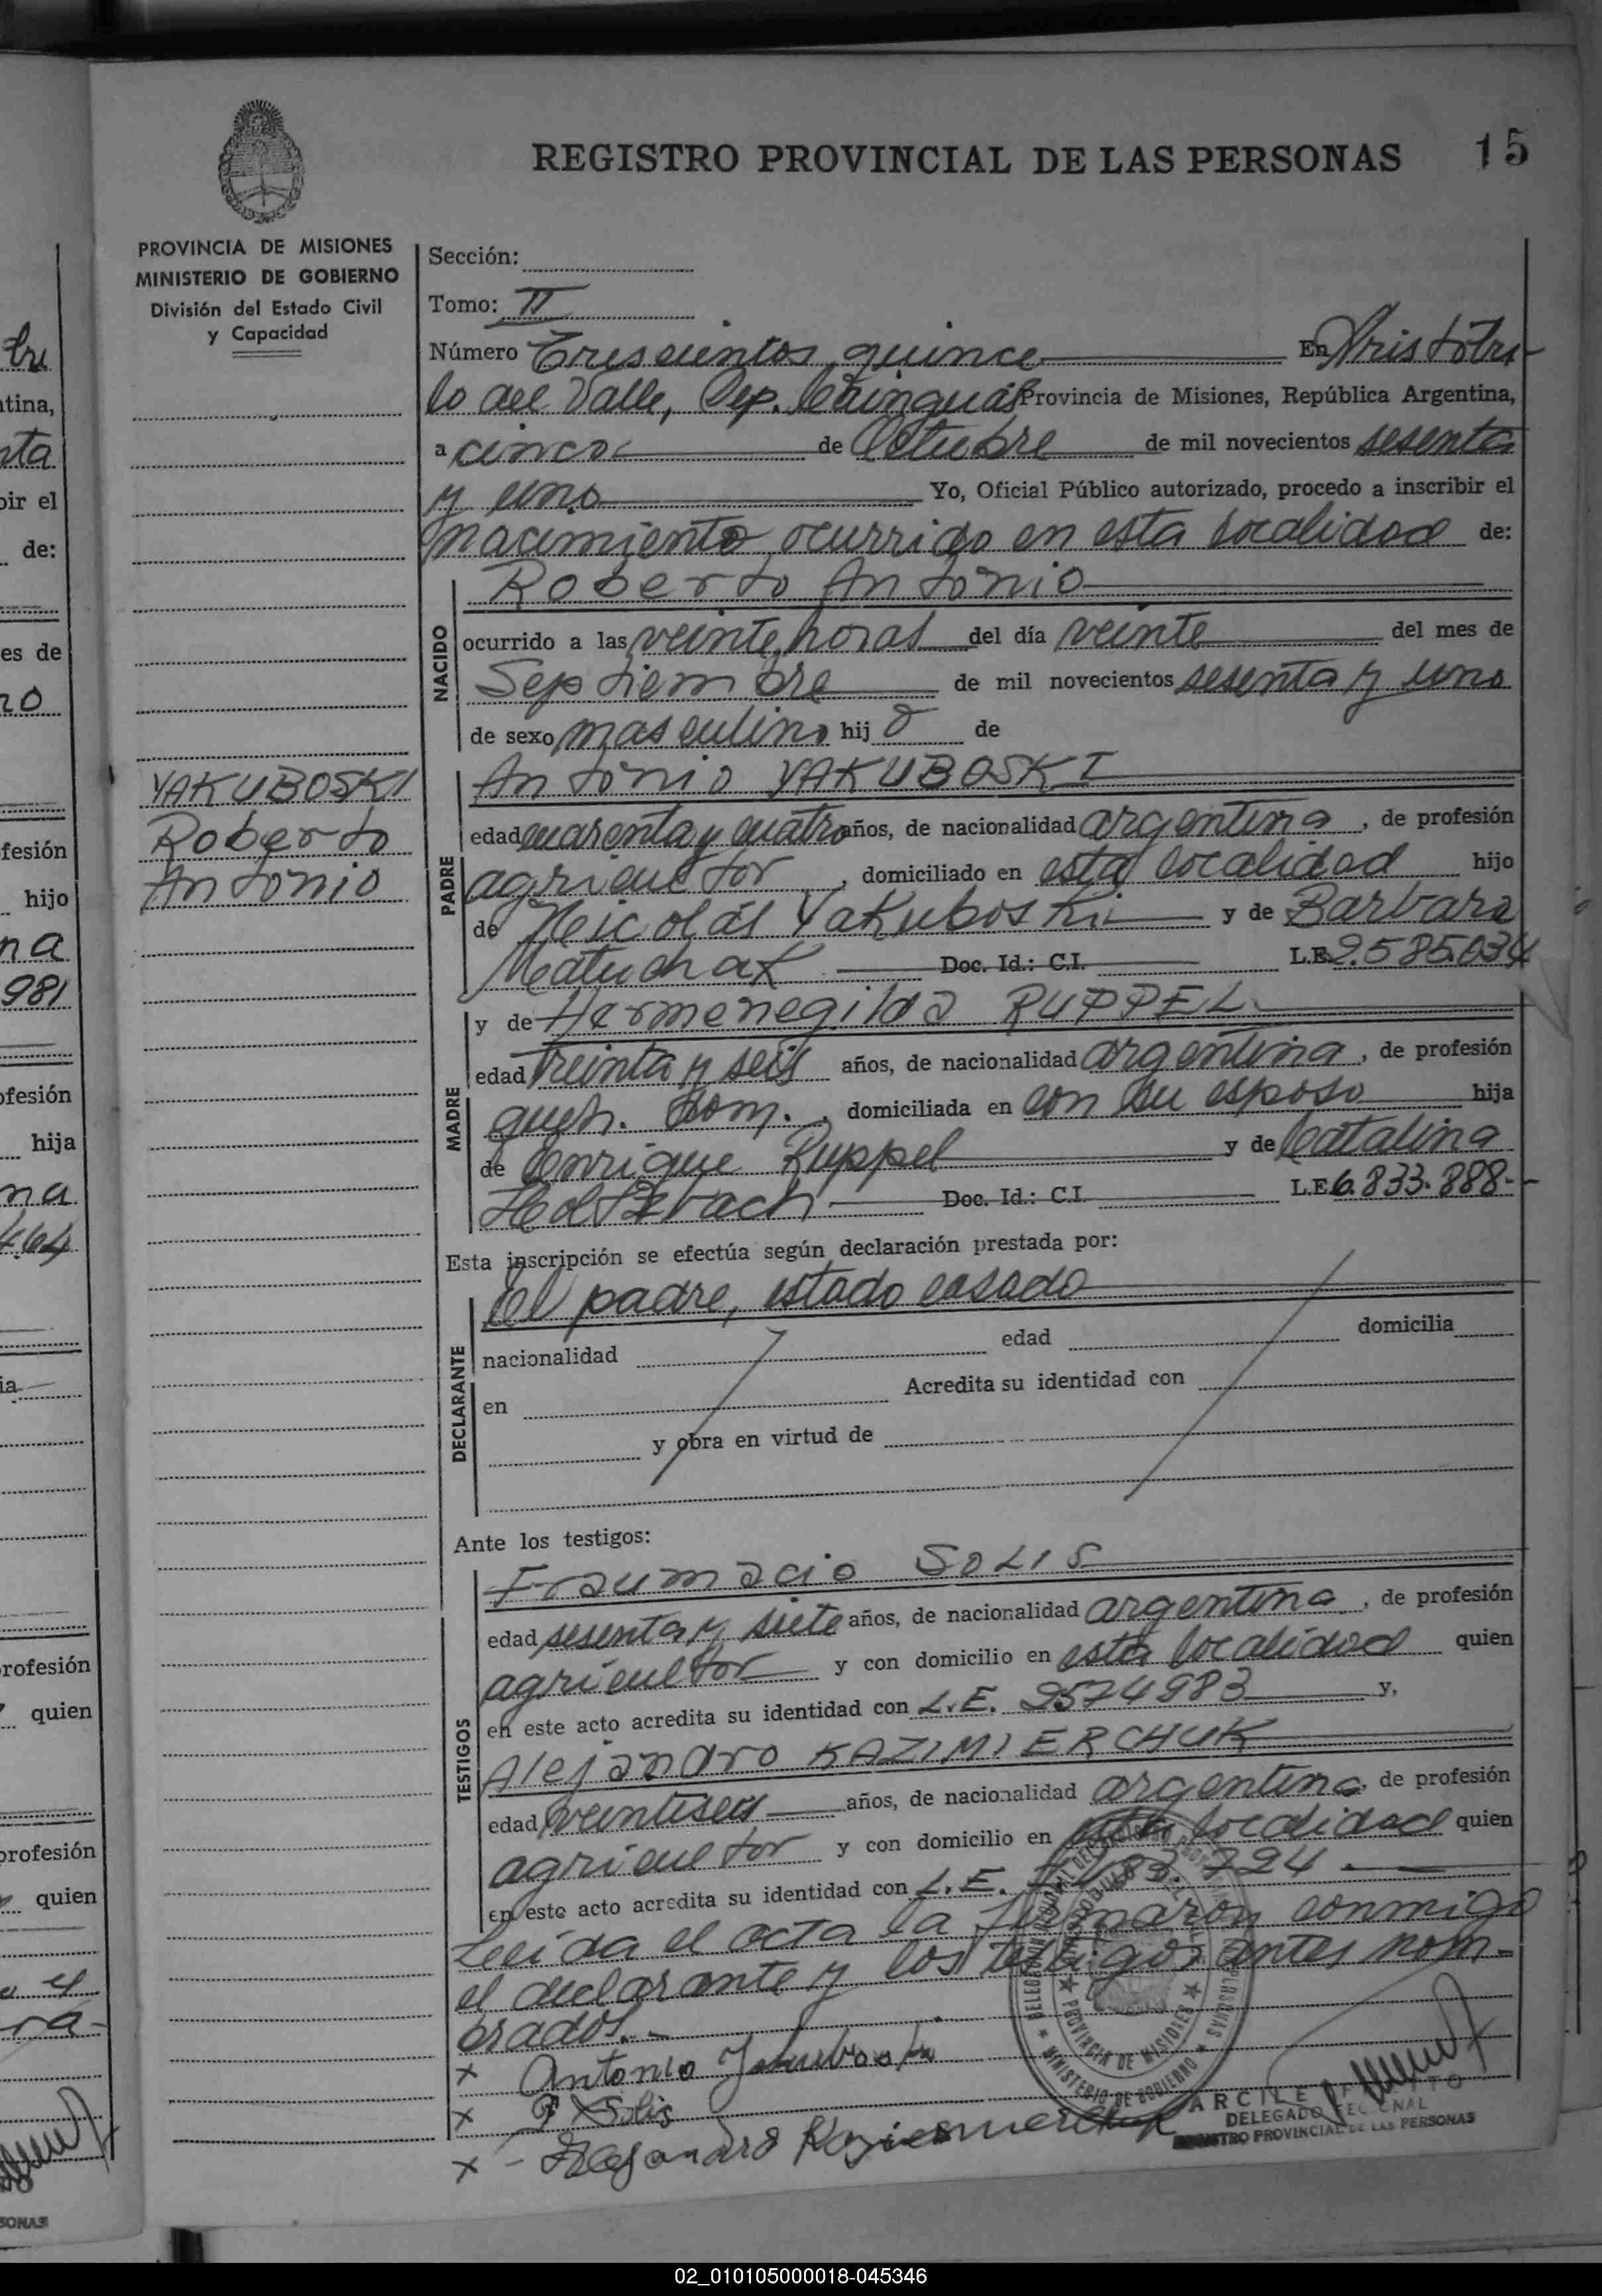 REGISTRO PROVINCIAL DE LAS PERSONAS 15
PROVINCIA DE MISIONES
MINISTERIO DE GOBIERNO
División del Estado Civil
y Capacidad
YAKUBOSKI
Roberto
Antonio
Sección:
Tomo: II
Número Trescientos quince En Aristóbu
lo del Valle, Dep. Cainguás Provincia de Misiones, República Argentina,
a cinco de Octubre de mil novecientos sesenta
y uno Yo, Oficial Público autorizado, procedo a inscribir el
nacimiento ocurrido en esta localidad de:
NACIDO
Roberto Antonio
ocurrido a las veinte horas del día veinte del mes de
Septiembre de mil novecientos sesenta y uno
de sexo masculino hij o de
PADRE
Antonio YAKUBOSKI
edad cuarenta y cuatro años, de nacionalidad argentina, de profesión
agricultor, domiciliado en esta localidad hijo
de Neicolás Yakuboski y de Barbara
Matuchak Doc. Id.: C.I. L.E. 2.585.034
MADRE
y de Hermenegilda RUPPEL
edad treinta y seis años, de nacionalidad argentina, de profesión
queh. dom., domiciliada en con su esposo hija
de Enrique Ruppel y de Catalina
Holtzbach Doc. Id.: C.I. L.E. 6.833.888-
Esta inscripción se efectúa según declaración prestada por:
DECLARANTE
el padre, estado casado
nacionalidad edad domicilia
en Acredita su identidad con
y obra en virtud de
Ante los testigos:
TESTIGOS
Fraumacio SOLIS
edad sesenta y siete años, de nacionalidad argentina, de profesión
agricultor y con domicilio en esta localidad quien
en este acto acredita su identidad con L.E. 2574983 y,
Alejandro KAZIMIERCHUK
edad veintiseis años, de nacionalidad argentina, de profesión
agricultor y con domicilio en esta localidad quien
en este acto acredita su identidad con L.E. 83.724.-
Leída el acta la firmaron conmigo
el declarante y los testigos antes nom-
brados.-
x Antonio Yakuboski
x F Solis
x - Alejandro
DELEGADO
REGISTRO PROVINCIAL DE LAS PERSONAS
PROVINCIA DE MISIONES
MINISTERIO DE GOBIERNO
02_010105000018-045346